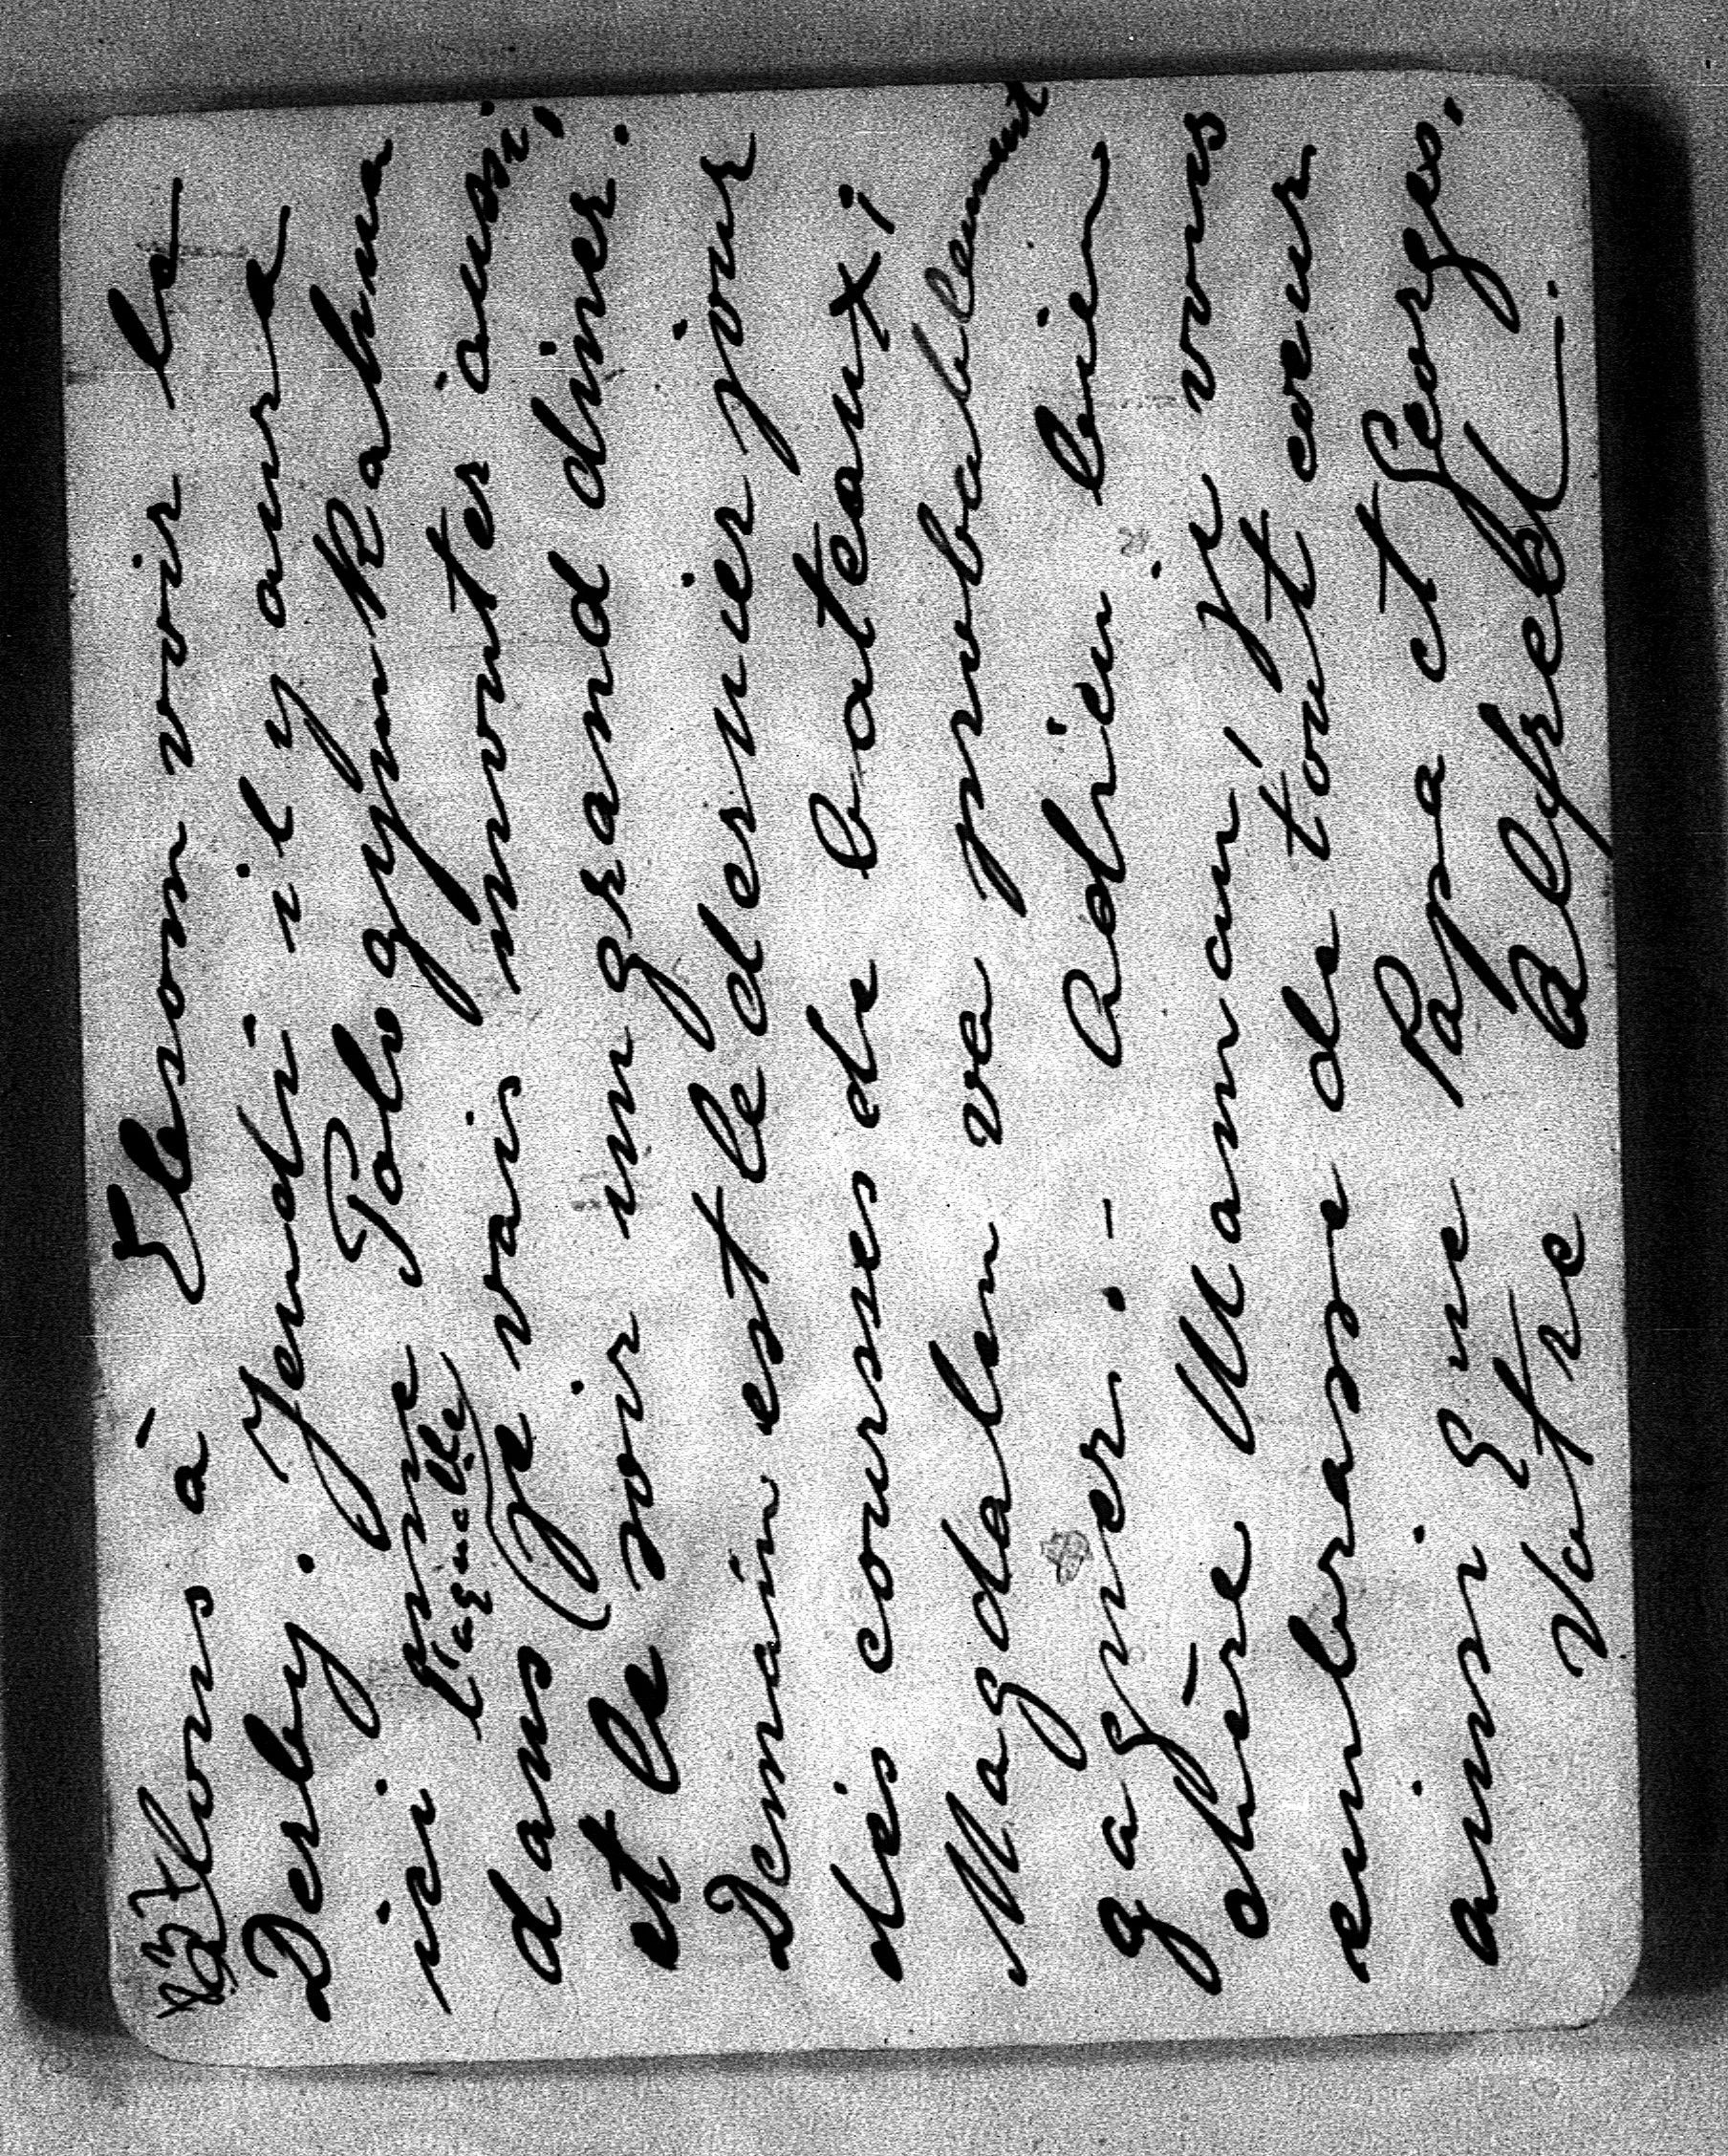 lons à Ebsom voir le
Derby. Jeudi il y aura
ici une Pologymkahna
laquelle
dans (je vais monter aussi,
et le soir un grand diner.
Demain est le dernier jour
des courses de bateaux;
Magdalen va probablement
gagner. - Adieu bien
chère Maman, je vous
embrasse de tout coeur
ainsi que Papa et Georges.
Votre Alfred.